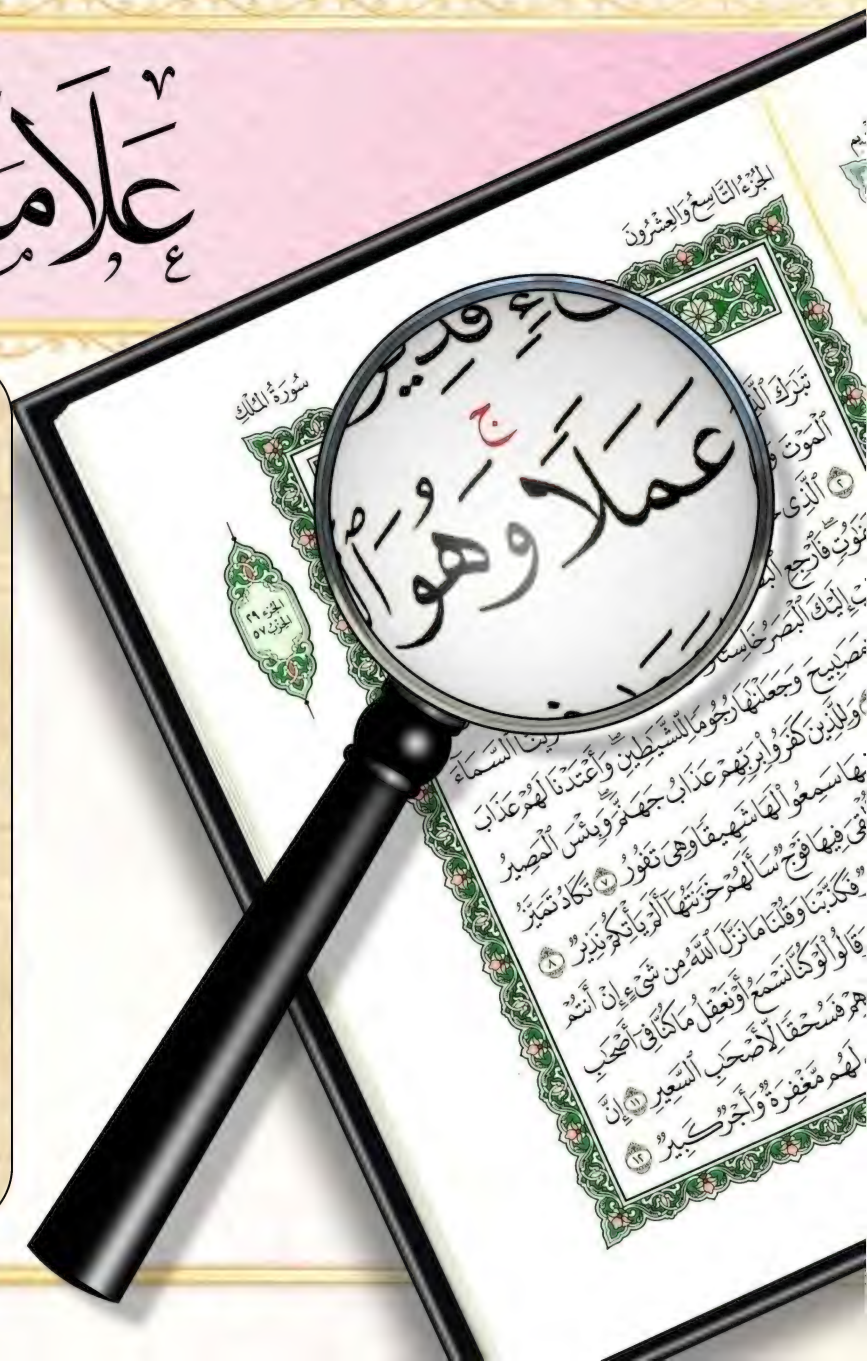 علا
الجزء التاسع والعشرون
سُورَةُ الْمُلْكِ
قدير
عَمَلًا ج وَهُوَ
الجزء ٢٩
الحزب ٥٧
تَبَٰرَكَ
ٱلْمَوْتَ
٢ ٱلَّذِى
فَٱرْجِعِ
إِلَيْكَ ٱلْبَصَرُ
ٱلسَّمَآءَ
بِمَصَٰبِيحَ وَجَعَلْنَٰهَا رُجُومًا لِّلشَّيَٰطِينِ ۖ وَأَعْتَدْنَا لَهُمْ عَذَابَ
وَلِلَّذِينَ كَفَرُوا۟ بِرَبِّهِمْ عَذَابُ جَهَنَّمَ ۖ وَبِئْسَ ٱلْمَصِيرُ
سَمِعُوا۟ لَهَا شَهِيقًا وَهِىَ تَفُورُ ٧ تَكَادُ تَمَيَّزُ
فِيهَا فَوْجٌ سَأَلَهُمْ خَزَنَتُهَآ أَلَمْ يَأْتِكُمْ نَذِيرٌ ٨
فَكَذَّبْنَا وَقُلْنَا مَا نَزَّلَ ٱللَّهُ مِن شَىْءٍ إِنْ أَنتُمْ
قَالُوا۟ لَوْ كُنَّا نَسْمَعُ أَوْ نَعْقِلُ مَا كُنَّا فِىٓ أَصْحَٰبِ
فَسُحْقًا لِّأَصْحَٰبِ ٱلسَّعِيرِ ١١ إِنَّ
لَهُم مَّغْفِرَةٌ وَأَجْرٌ كَبِيرٌ ١٢